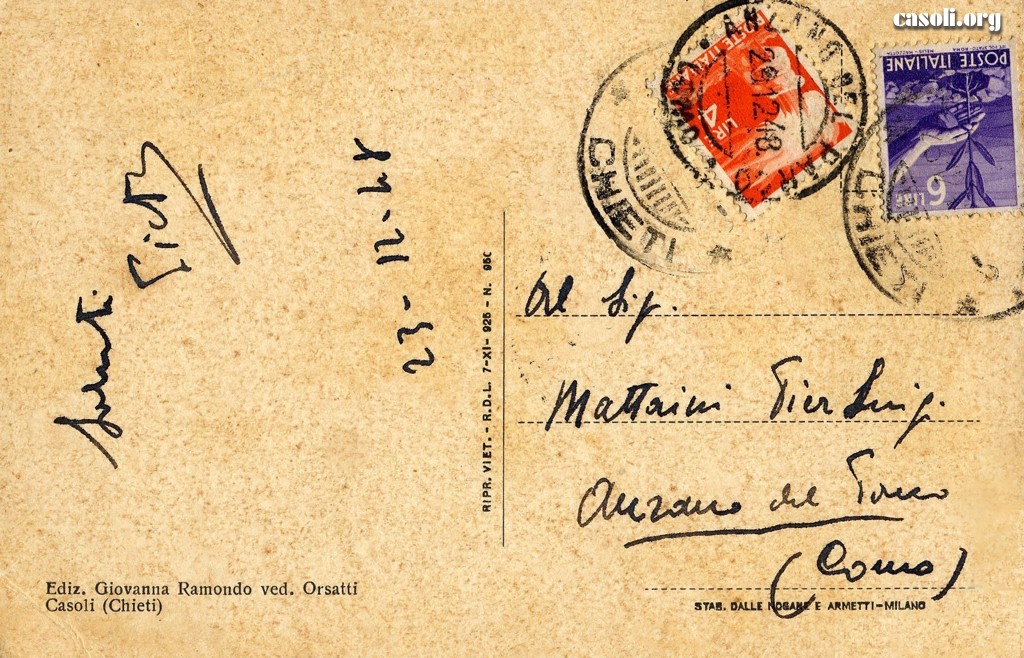 casoli.org
POSTE ITALIANE
LIRE 4
ANZANO DEL PARCO
29.12.48
CHIETI
POSTE ITALIANE
6 LIRE
CHIETI
Saluti
23-12-48
RIPR. VIET. - R.D.L. 7-XI-925 - N. 950
Al Sig.
Mattaini Pier Luig.
Anzano del Parco
(Como)
Ediz. Giovanna Ramondo ved. Orsatti
Casoli (Chieti)
STAB. DALLE NOGARE E ARMETTI-MILANO